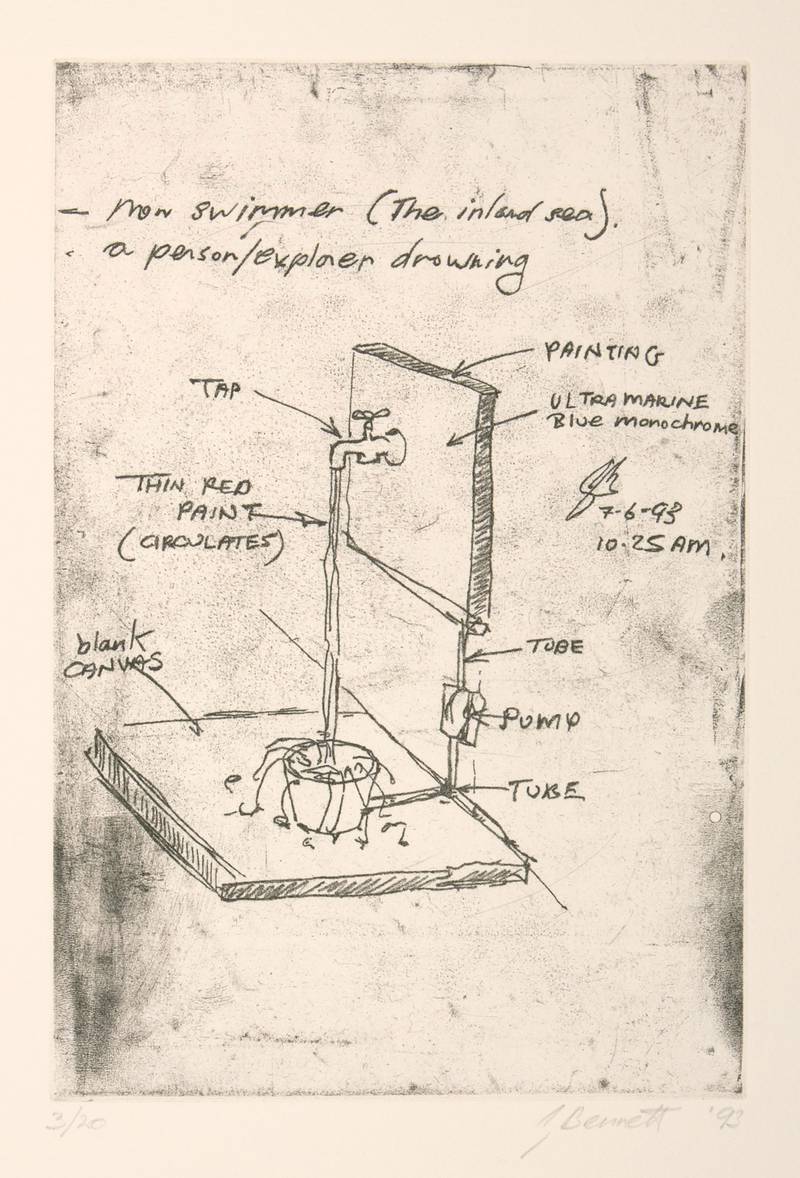 – Non swimmer (The inland sea).
. a person/explorer drowning
PAINTING
TAP
ULTRAMARINE
Blue monochrome
THIN RED
PAINT
(CIRCULATES)
7-6-93
10.25 AM.
blank
CANVAS
TUBE
PUMP
TUBE
3/20
J Bennett '93